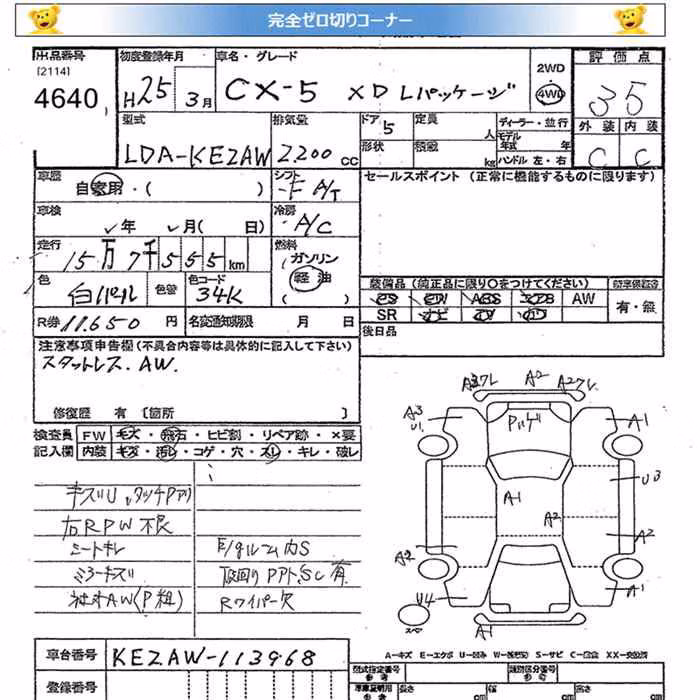 完全ゼロ切りコーナー
出品番号 初度登録年月 車名・グレード 2WD 評価点
[2114]
4640 H25 3月 CX-5 XD Lパッケージ 4WD 3 5
型式 排気量 ドア 5 定員 人 ディーラー・並行 外装 内装
モデル年式 年
LDA-KE2AW 2200 cc 形状 積載 kg ハンドル 左・右 C C
車歴 自家用・( ) シフト F A/T セールスポイント (正常に機能するものに限ります)
車検 年 月( 日) 冷房 A/C
走行 15万7千555km 燃料 ガソリン
軽油
色 白パール 色替 色コード 34K ( ) 装備品 (純正品に限り○をつけてください)
PS PW ABS エアB AW 有・無
R券 11,650 円 名変通知期限 月 日 SR ナビ TV カワ
注意事項申告欄 (不具合内容等は具体的に記入して下さい) 後日品
スタットレス. AW.
修復歴 有 [箇所 ]
検査員 FW キズ・飛石・ヒビ割・リペア跡・×要
記入欄 内装 キズ・汚レ・コゲ・穴・スレ・キレ・破レ
A2 A27レ
A3 U1 A1
A1 U3
A2 A2
A2 U4 A1
スペア A1
キズU、タッチPアリ
右RPW不良
シートキレ E/gルーム内S
ミラーキズ 下回りPアト,SC有
社外AW(P粗) Rワイパー欠
A-キズ E-エクボ U-凹み W-(板金跡) S-サビ C-腐食 XX-交換済
車台番号 KE2AW-113968 型式指定番号 参考 類別区分番号 参考
登録番号 長さ cm 幅 cm 高さ cm